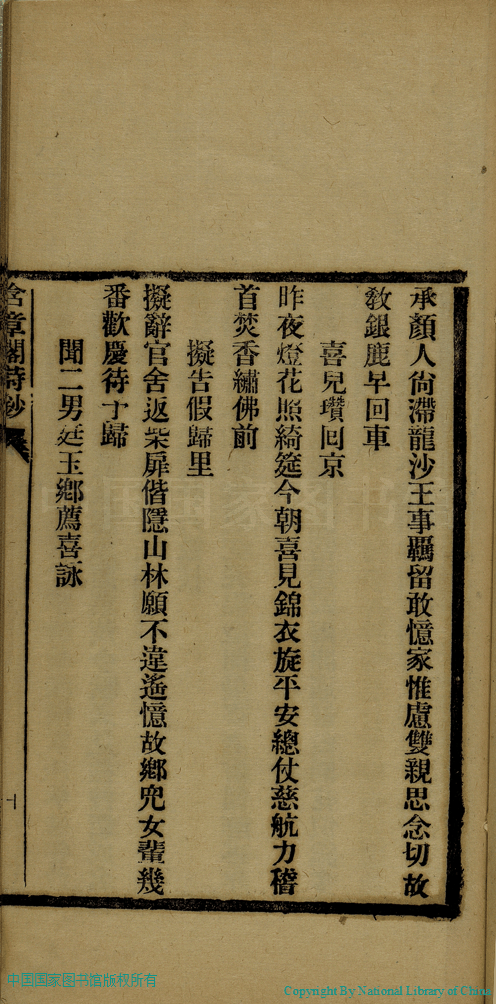 承顏人尙滯龍沙王事羈留敢憶家惟慮雙親思念切故
敎銀鹿早回車
喜兒瓚回京
昨夜燈花照綺筵今朝喜見錦衣旋平安總仗慈航力稽
首焚香繡佛前
擬告假歸里
擬辭官舍返柴扉偕隱山林願不違遙憶故鄉兒女輩幾
番歡慶待予歸
聞二男廷玉鄉薦喜詠
含章閣詩鈔
中国国家图书馆
中国国家图书馆版权所有
Copyright By National Library of China